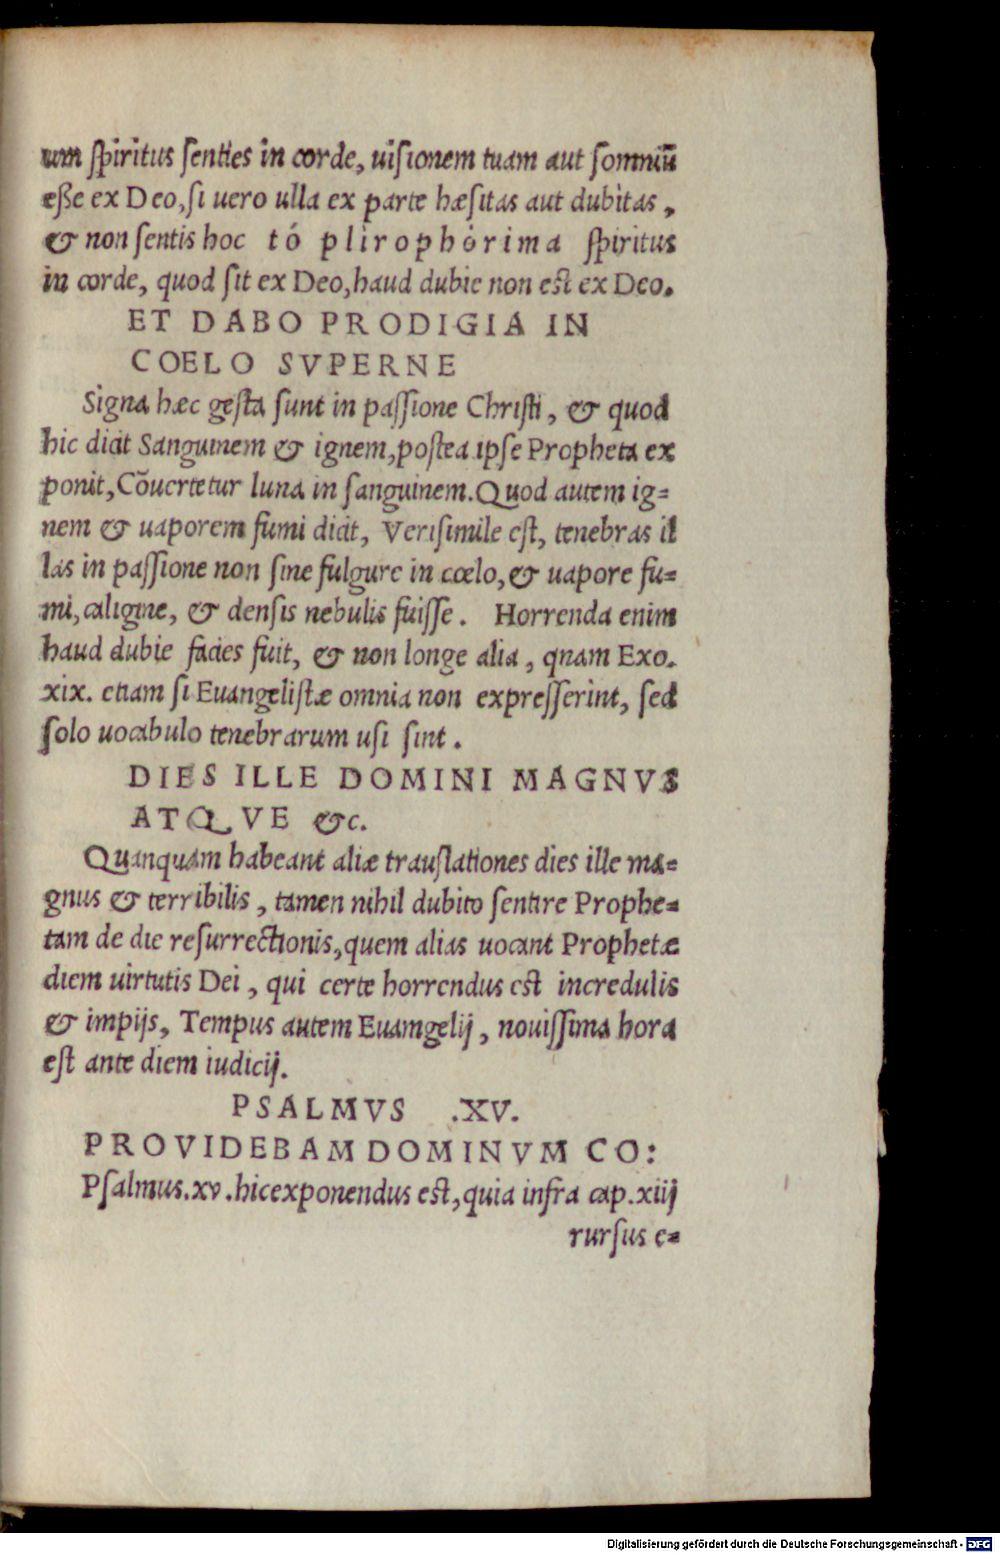 um ſpiritus ſenties in corde, uiſionem tuam aut ſomniū
eſſe ex Deo, ſi uero ulla ex parte hæſitas aut dubitas,
& non ſentis hoc tó pliróphórima ſpiritus
in corde, quod ſit ex Deo, haud dubie non eſt ex Deo.
ET DABO PRODIGIA IN
COELO SVPERNE
Signa hæc geſta ſunt in paſſione Chriſti, & quod
hic dicit Sanguinem & ignem, poſtea ipſe Propheta ex
ponit, Cōuertetur luna in ſanguinem. Quod autem ig=
nem & uaporem fumi dicit, Veriſimile eſt, tenebras il
las in paſſione non ſine fulgure in cœlo, & uapore fu=
mi, caligine, & denſis nebulis fuiſſe. Horrenda enim
haud dubie facies fuit, & non longe alia, qnam Exo.
xix. etiam ſi Euangeliſtæ omnia non expreſſerint, ſed
ſolo uocabulo tenebrarum uſi ſint.
DIES ILLE DOMINI MAGNVS
ATQVE &c.
Quanquam habeant aliæ trauſlationes dies ille ma=
gnus & terribilis, tamen nihil dubito ſentire Prophe=
tam de die reſurrectionis, quem alias uocant Prophetæ
diem uirtutis Dei, qui certe horrendus eſt incredulis
& impijs, Tempus autem Euamgelij, nouiſſima hora
eſt ante diem iudicij.
PSALMVS .XV.
PROVIDEBAM DOMINVM CO:
Pſalmus.xv. hic exponendus eſt, quia infra cap.xiij
rurſus e=
Digitalisierung gefördert durch die Deutsche Forschungsgemeinschaft - DFG